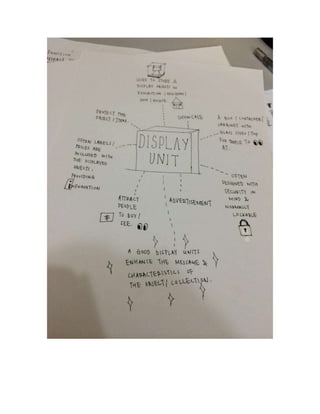 USED TO STORE &
DISPLAY OBJECTS IN
EXHIBITION / MUSEUMS /
PROTECT THE
OBJECT / ITEMS.
SHOWCASE
A BOX / CONTAINER /
GLASS
FOR PEOPLE TO
AT.
DISPLAY
UNIT
OFTEN LABELS /
PRICES ARE
INCLUDED WITH
THE DISPLAYED
OBJECTS,
PROVIDING
INFORMATION
OFTEN
DESIGNED WITH
SECURITY IN
MIND &
NORMALLY
LOCKABLE
ATTRACT
PEOPLE
TO BUY /
SEE.
ADVERTISEMENT
A GOOD DISPLAY UNITS
ENHANCE THE MESSAGE &
CHARACTERISTICS OF
THE OBJECT / COLLECTION.